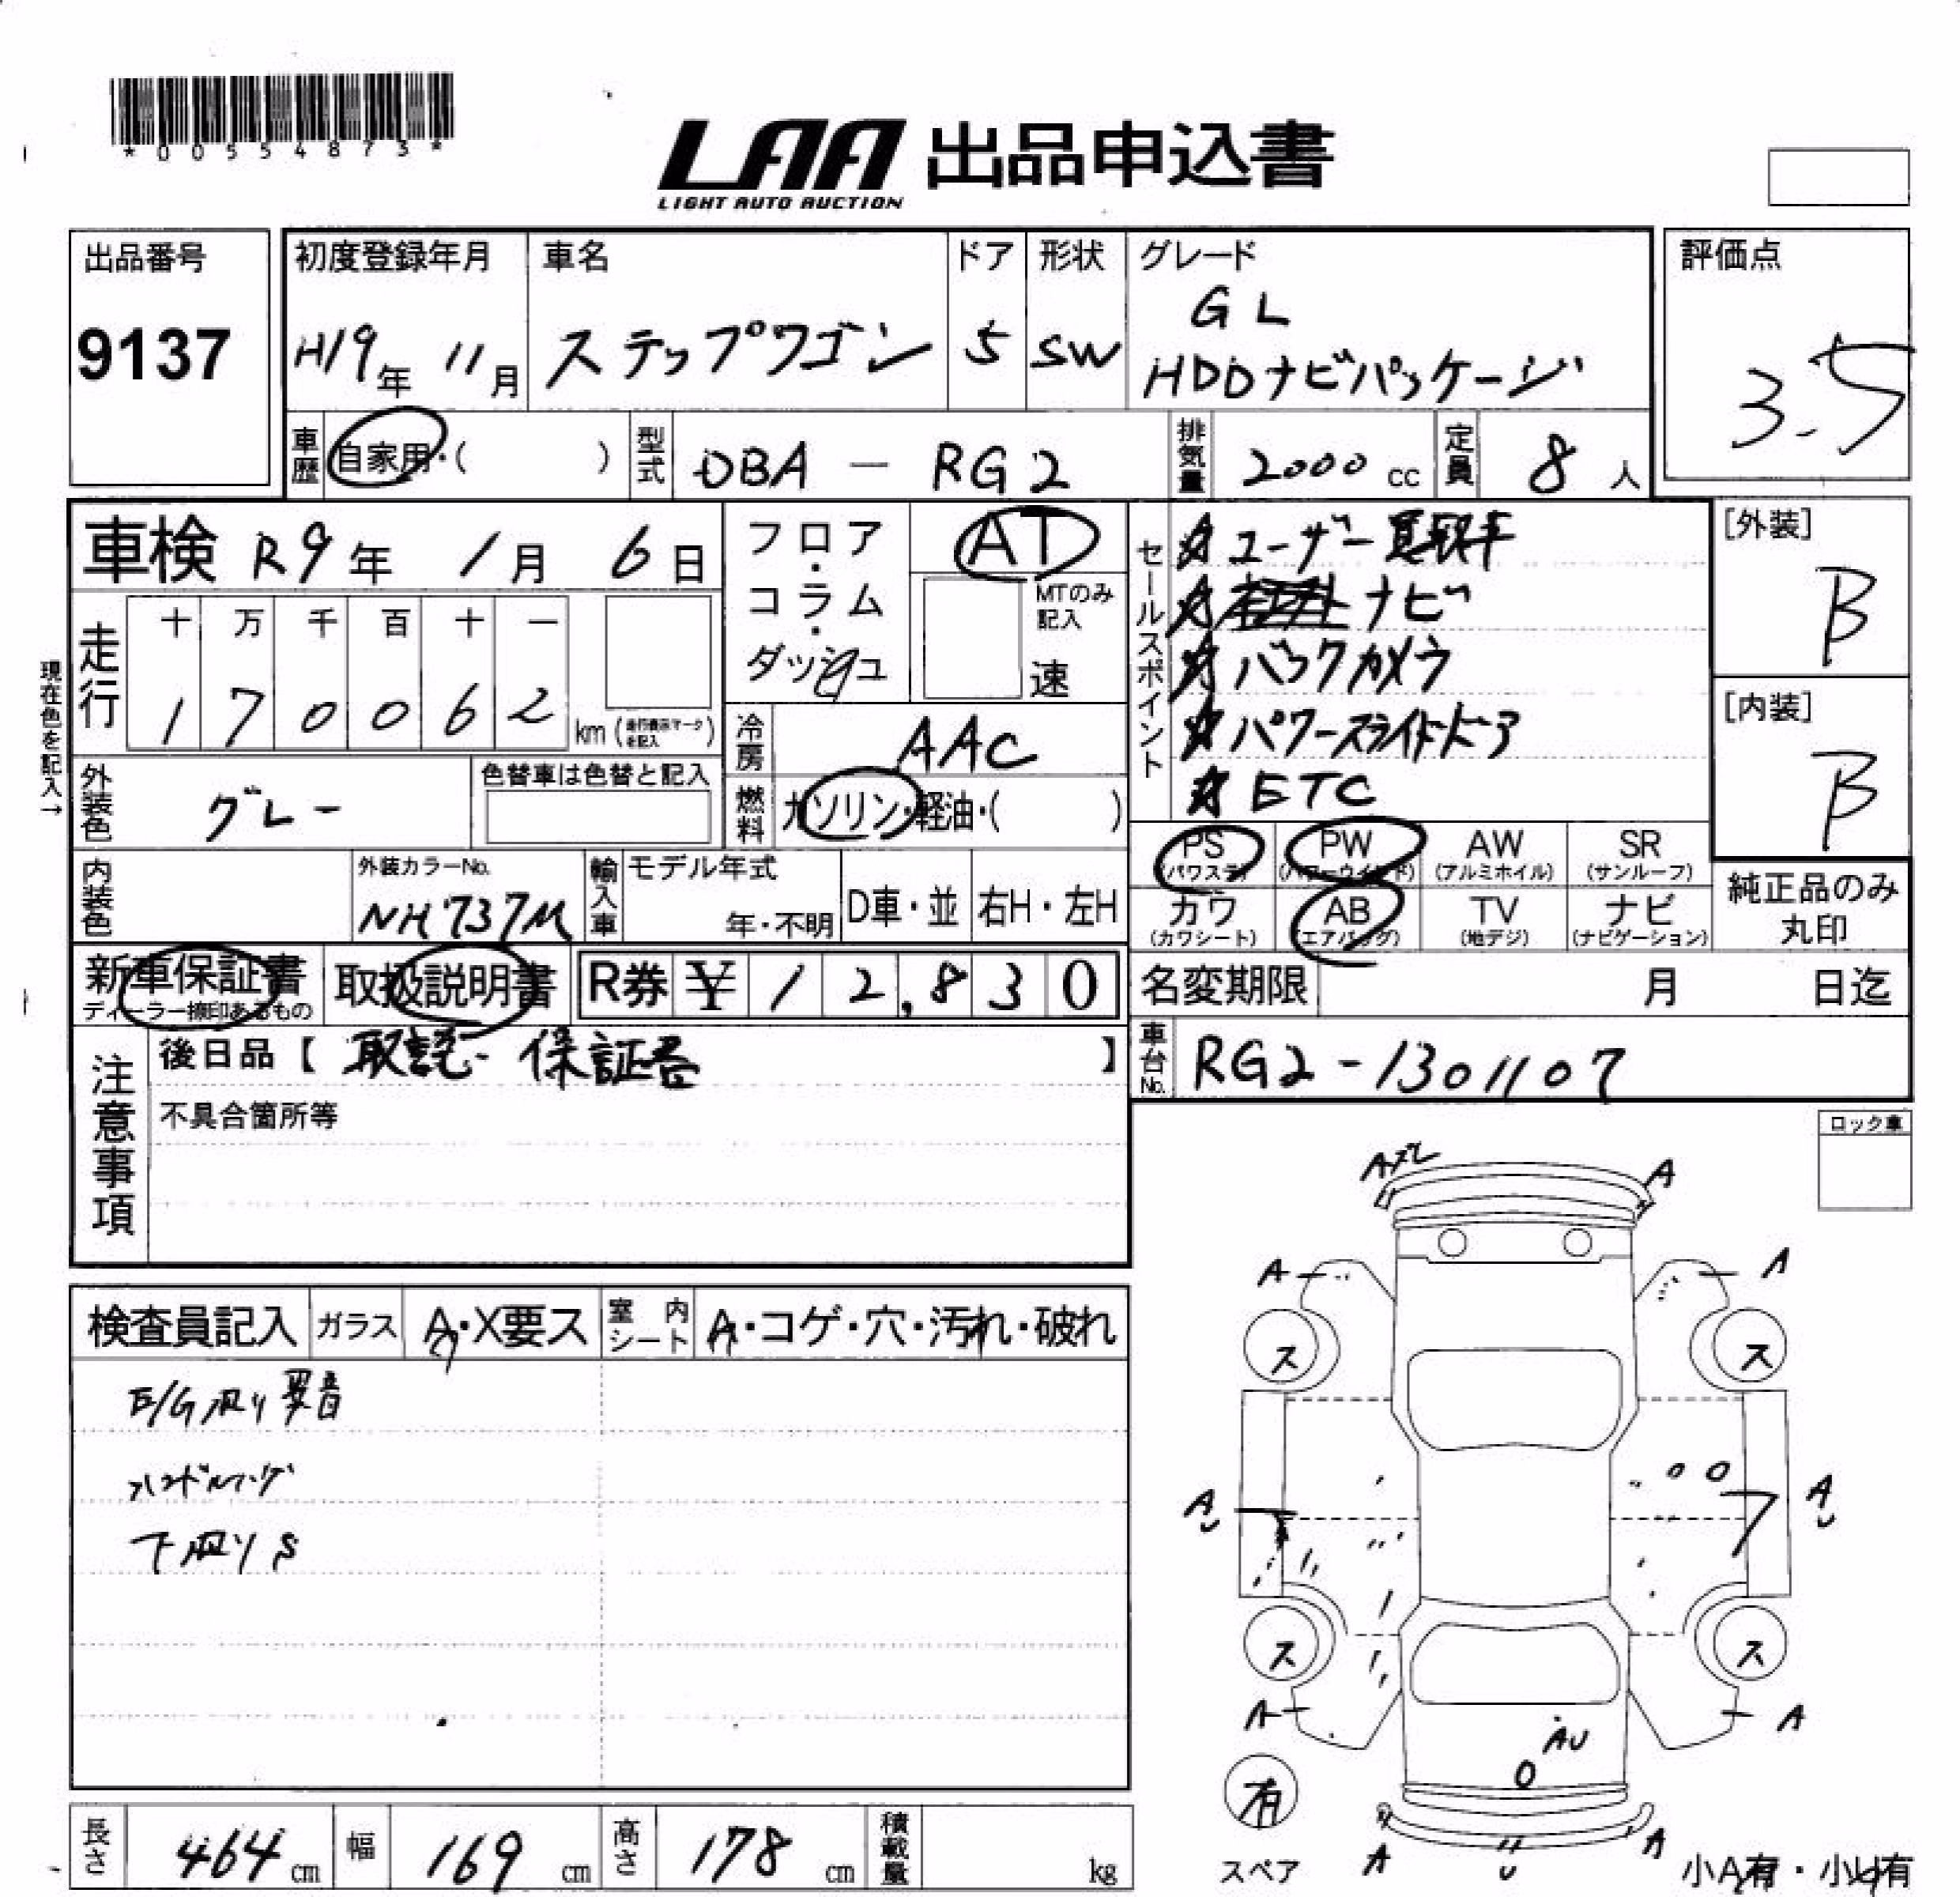 *00554873*
LAA 出品申込書
LIGHT AUTO AUCTION
出品番号 9137
初度登録年月 H19年 11月
車名 ステップワゴン
ドア 5
形状 SW
グレード GL
HDDナビパッケージ
評価点 3.5
車歴 自家用・( )
型式 DBA - RG2
排気量 2000 cc
定員 8 人
車検 R9年 1月 6日
走行 十 万 千 百 十 一
1 7 0 0 6 2 km (走行表示マークを記入)
現在色を記入→
外装色 グレー
色替車は色替と記入
内装色
外装カラーNo. NH737M
輸入車 モデル年式 年・不明 D車・並 右H・左H
フロア・コラム・ダッシュ
AT
MTのみ記入
速
冷房 AAC
燃料 ガソリン・軽油・( )
セールスポイント
ユーザー買取車
ナビ
バックカメラ
パワースライドドア
ETC
[外装] B
[内装] B
PS (パワステ) PW (パワーウインド) AW (アルミホイル) SR (サンルーフ)
カワ (カワシート) AB (エアバッグ) TV (地デジ) ナビ (ナビゲーション)
純正品のみ丸印
新車保証書 ディーラー捺印あるもの
取扱説明書
R券 ¥ 12,830
名変期限 月 日迄
注意事項
後日品【 取説・保証書 】
車台No. RG2-1301107
不具合箇所等
ロック車
検査員記入 ガラス A・X要ス 室内シート A・コゲ・穴・汚れ・破れ
E/G廻り異音
下廻りS
A A
A A
ス ス
A A
ス ス
A A
AU
有
スペア
A A
小A有・小U有
長さ 464 cm 幅 169 cm 高さ 178 cm 積載量 kg